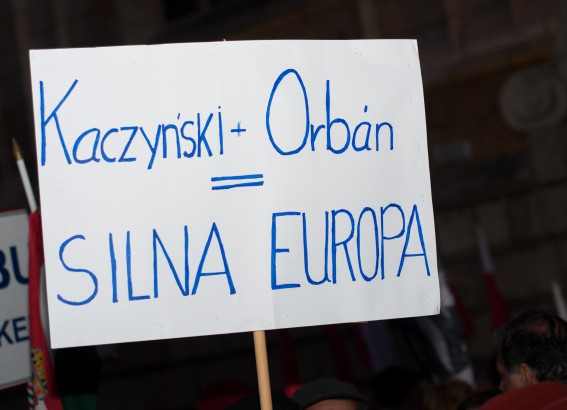 Kaczyński + Orbán
=
SILNA EUROPA